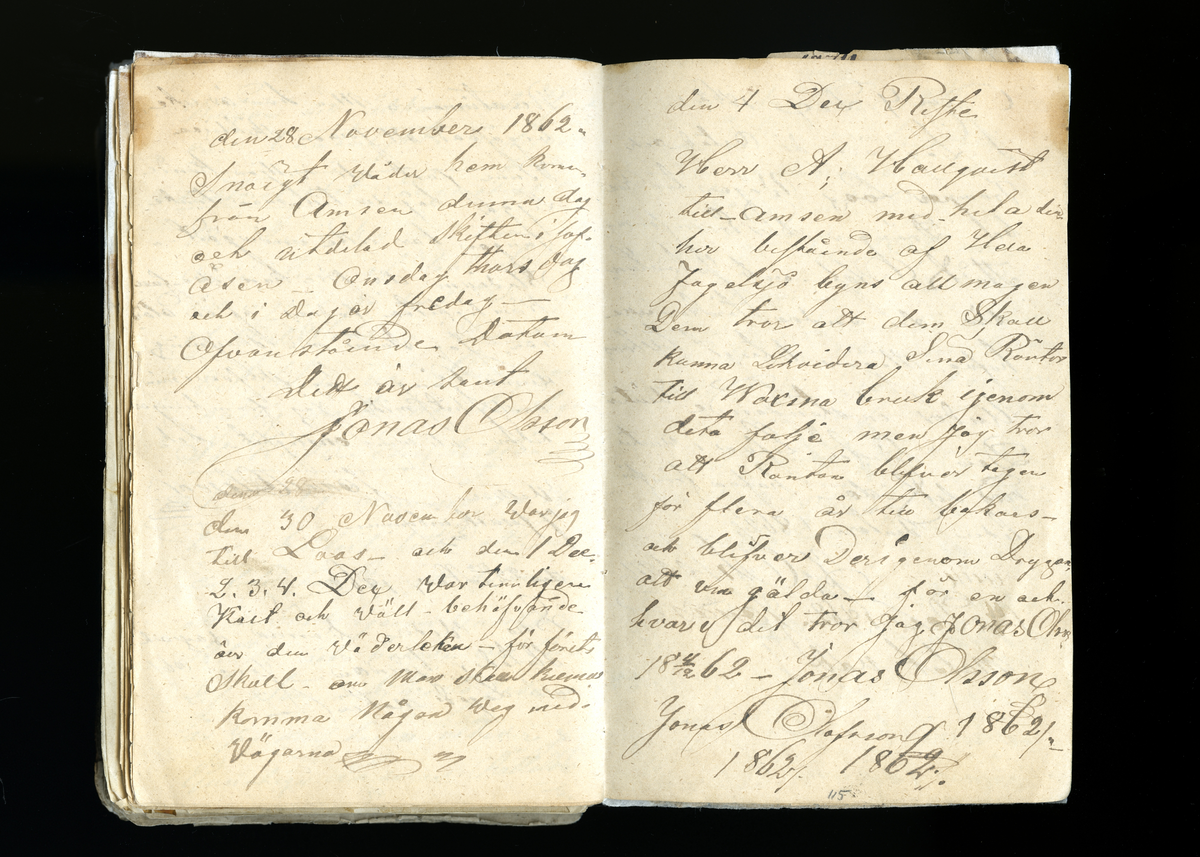 den 28 November 1862
Snöigt Väder hem kom
från Amsen denna dag
och utdelad Skiften i
åsen - Onsdag thors dag
och i Dag är fredag -
Ofvanstående Datum
Dett är sant
Jonas Olsson
den 28
den 30 November Var jag
till Loos - och den 1 Dec
2. 3. 4. Dex Var temligen
Kalt och Väll - behöfvande
är den Väderleken - för
Skall - man skall kunna
komma Någon Veg med
Vägarna
den 4 Dex Reste
Herr A; Hallqvist
till - Amsen med - hela
hor bestående af Hela
Fogelsjö byns allmogen
Dem tror att dem Skall
kunna Likvidera Sina Räntor
till Woxna bruk igenom
deta følje men jag tror
att Räntan blifver tagen
för flera år till bakars -
och blifver Derigenom Dryg
att gälda - för en och
hvar; det tror Jag Jonas Olss
18 4/12 62 - Jonas Olsson
Jonas Olofsson 1862
1862. 1862.
115